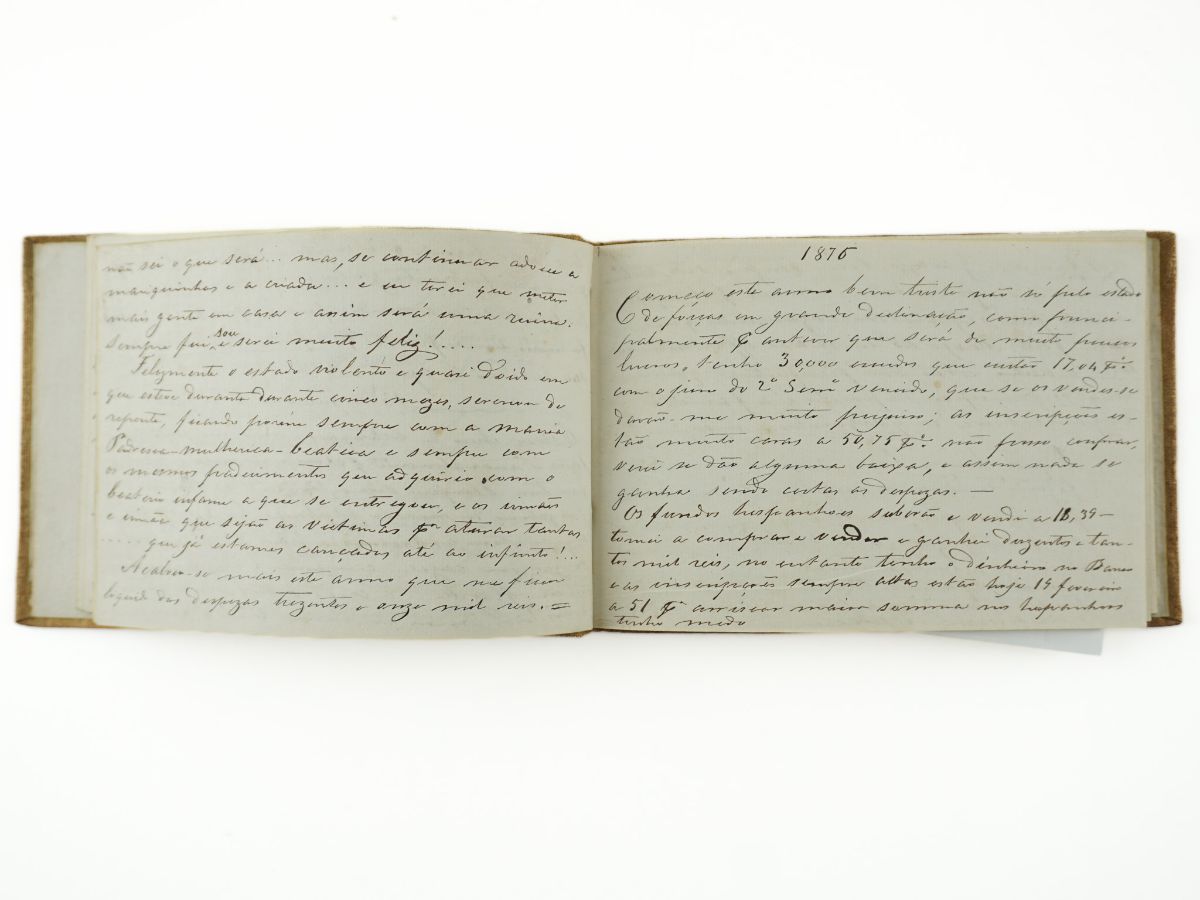 não sei o que será... mas, se continuar adoece a
mariquinhas e a criada... e eu terei que meter
mais gente em casa e assim será uma ruina.
Sempre fui, sou e serei muito feliz!....
Felizmente o estado violento e quasi doido em
que esteve durante durante cinco mezes, serenou de
repente, ficando porém sempre com a mania
Padresca-mulherica-beatica e sempre com
os mesmos padecimentos que adquirio com o
beaterio infame a que se entregou, e os irmãos
e irmãs que sejão as victimas pª aturar tantas
..... que já estamos cançados até ao infinito!...
Acabou-se mais este anno que me ficou
liquido das despezas trezentos e onze mil reis. =
1876
Começo este anno bem triste não só pelo estado
de forças em grande declinação, como princi-
palmente pª antever que será de muito poucos
lucros, tenho 30,000 escudos que custão 17,04 pr.
com o juro do 2º Semᵉ vencido, que se os vendesse
darão-me muito prejuiso; as inscripções es-
tão muito caras a 50,75 pr. não posso comprar,
verei se dão alguma baixa, e assim nada se
ganha sendo certas as despezas. —
Os fundos hespanhoes subirão e vendi a 18,39 —
tornei a comprar e vender e ganhei duzentos e tan-
tos mil reis, no entanto tenho o dinheiro no Banco
e as inscripções sempre altas estão hoje 19 fevereiro
a 51 pr arriscar maior somma nos hespanhoes
tenho medo